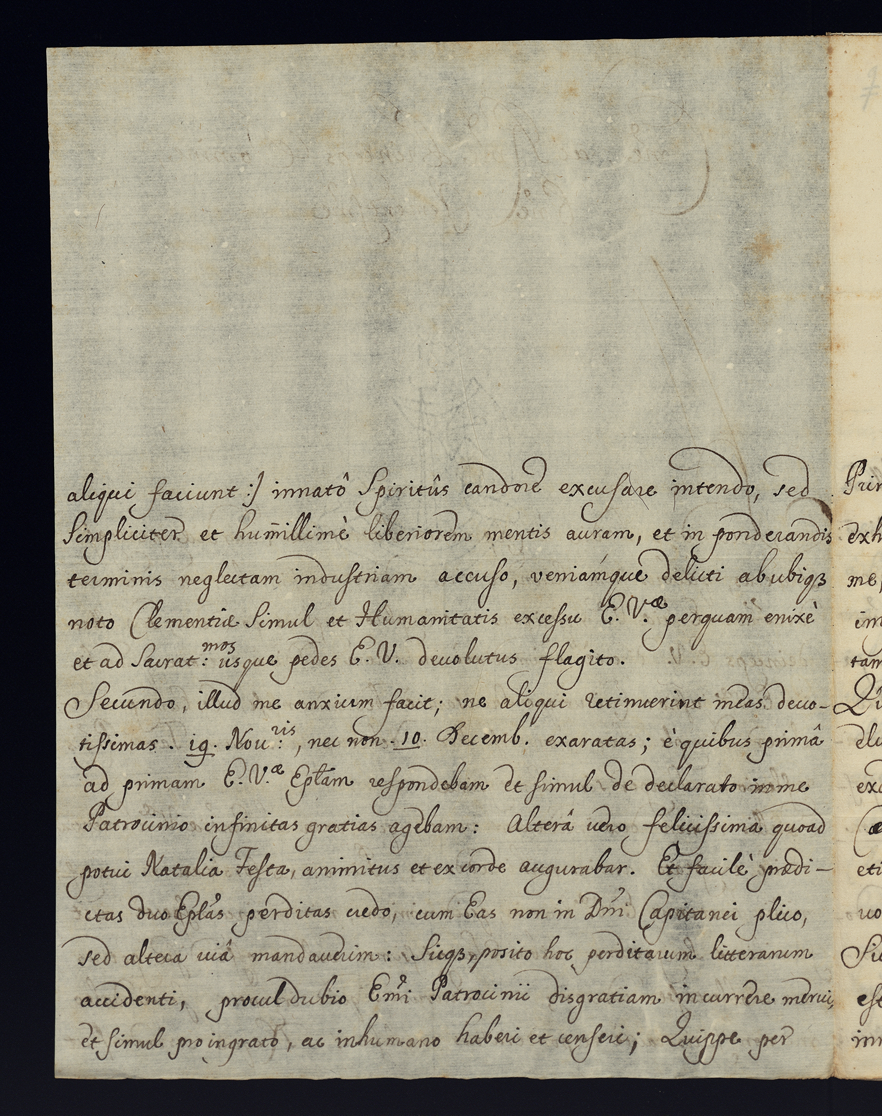 aliqui faciunt :/ innatô Spiritûs candore excusare intendo, sed
Simpliciter et humillimè liberiorem mentis auram, et in ponderandis
terminis neglectam industriam accuso, veniamque delicti ab ubiq3
noto Clementiæ Simul et Humanitatis excessu E. V.æ perquam enixè
et ad Sacrat:mos usque pedes E. V. devolutus flagito.
Secundo, illud me anxium facit; ne aliqui retinuerint meas devo-
tissimas . 19. Nou:ris, nec non . 10. Decemb. exaratas; è quibus primâ
ad primam E. V.æ Eplam respondebam et simul de declarato in me
Patrocinio infinitas gratias agebam: Alterâ vero felicissima quoad
potui Natalia Festa, animitus et ex corde augurabar. Et facilè prædi-
ctas duo Eplas perditas credo, cum Eas non in Dni Capitanei plico,
sed altera viâ mandaverim: Sicq3, posito hoc perditarum litterarum
accidenti, procul dubio Emi Patrocinii disgratiam incurrere merui,
et simul pro ingrato, ac inhumano haberi et censeri; Quippe per